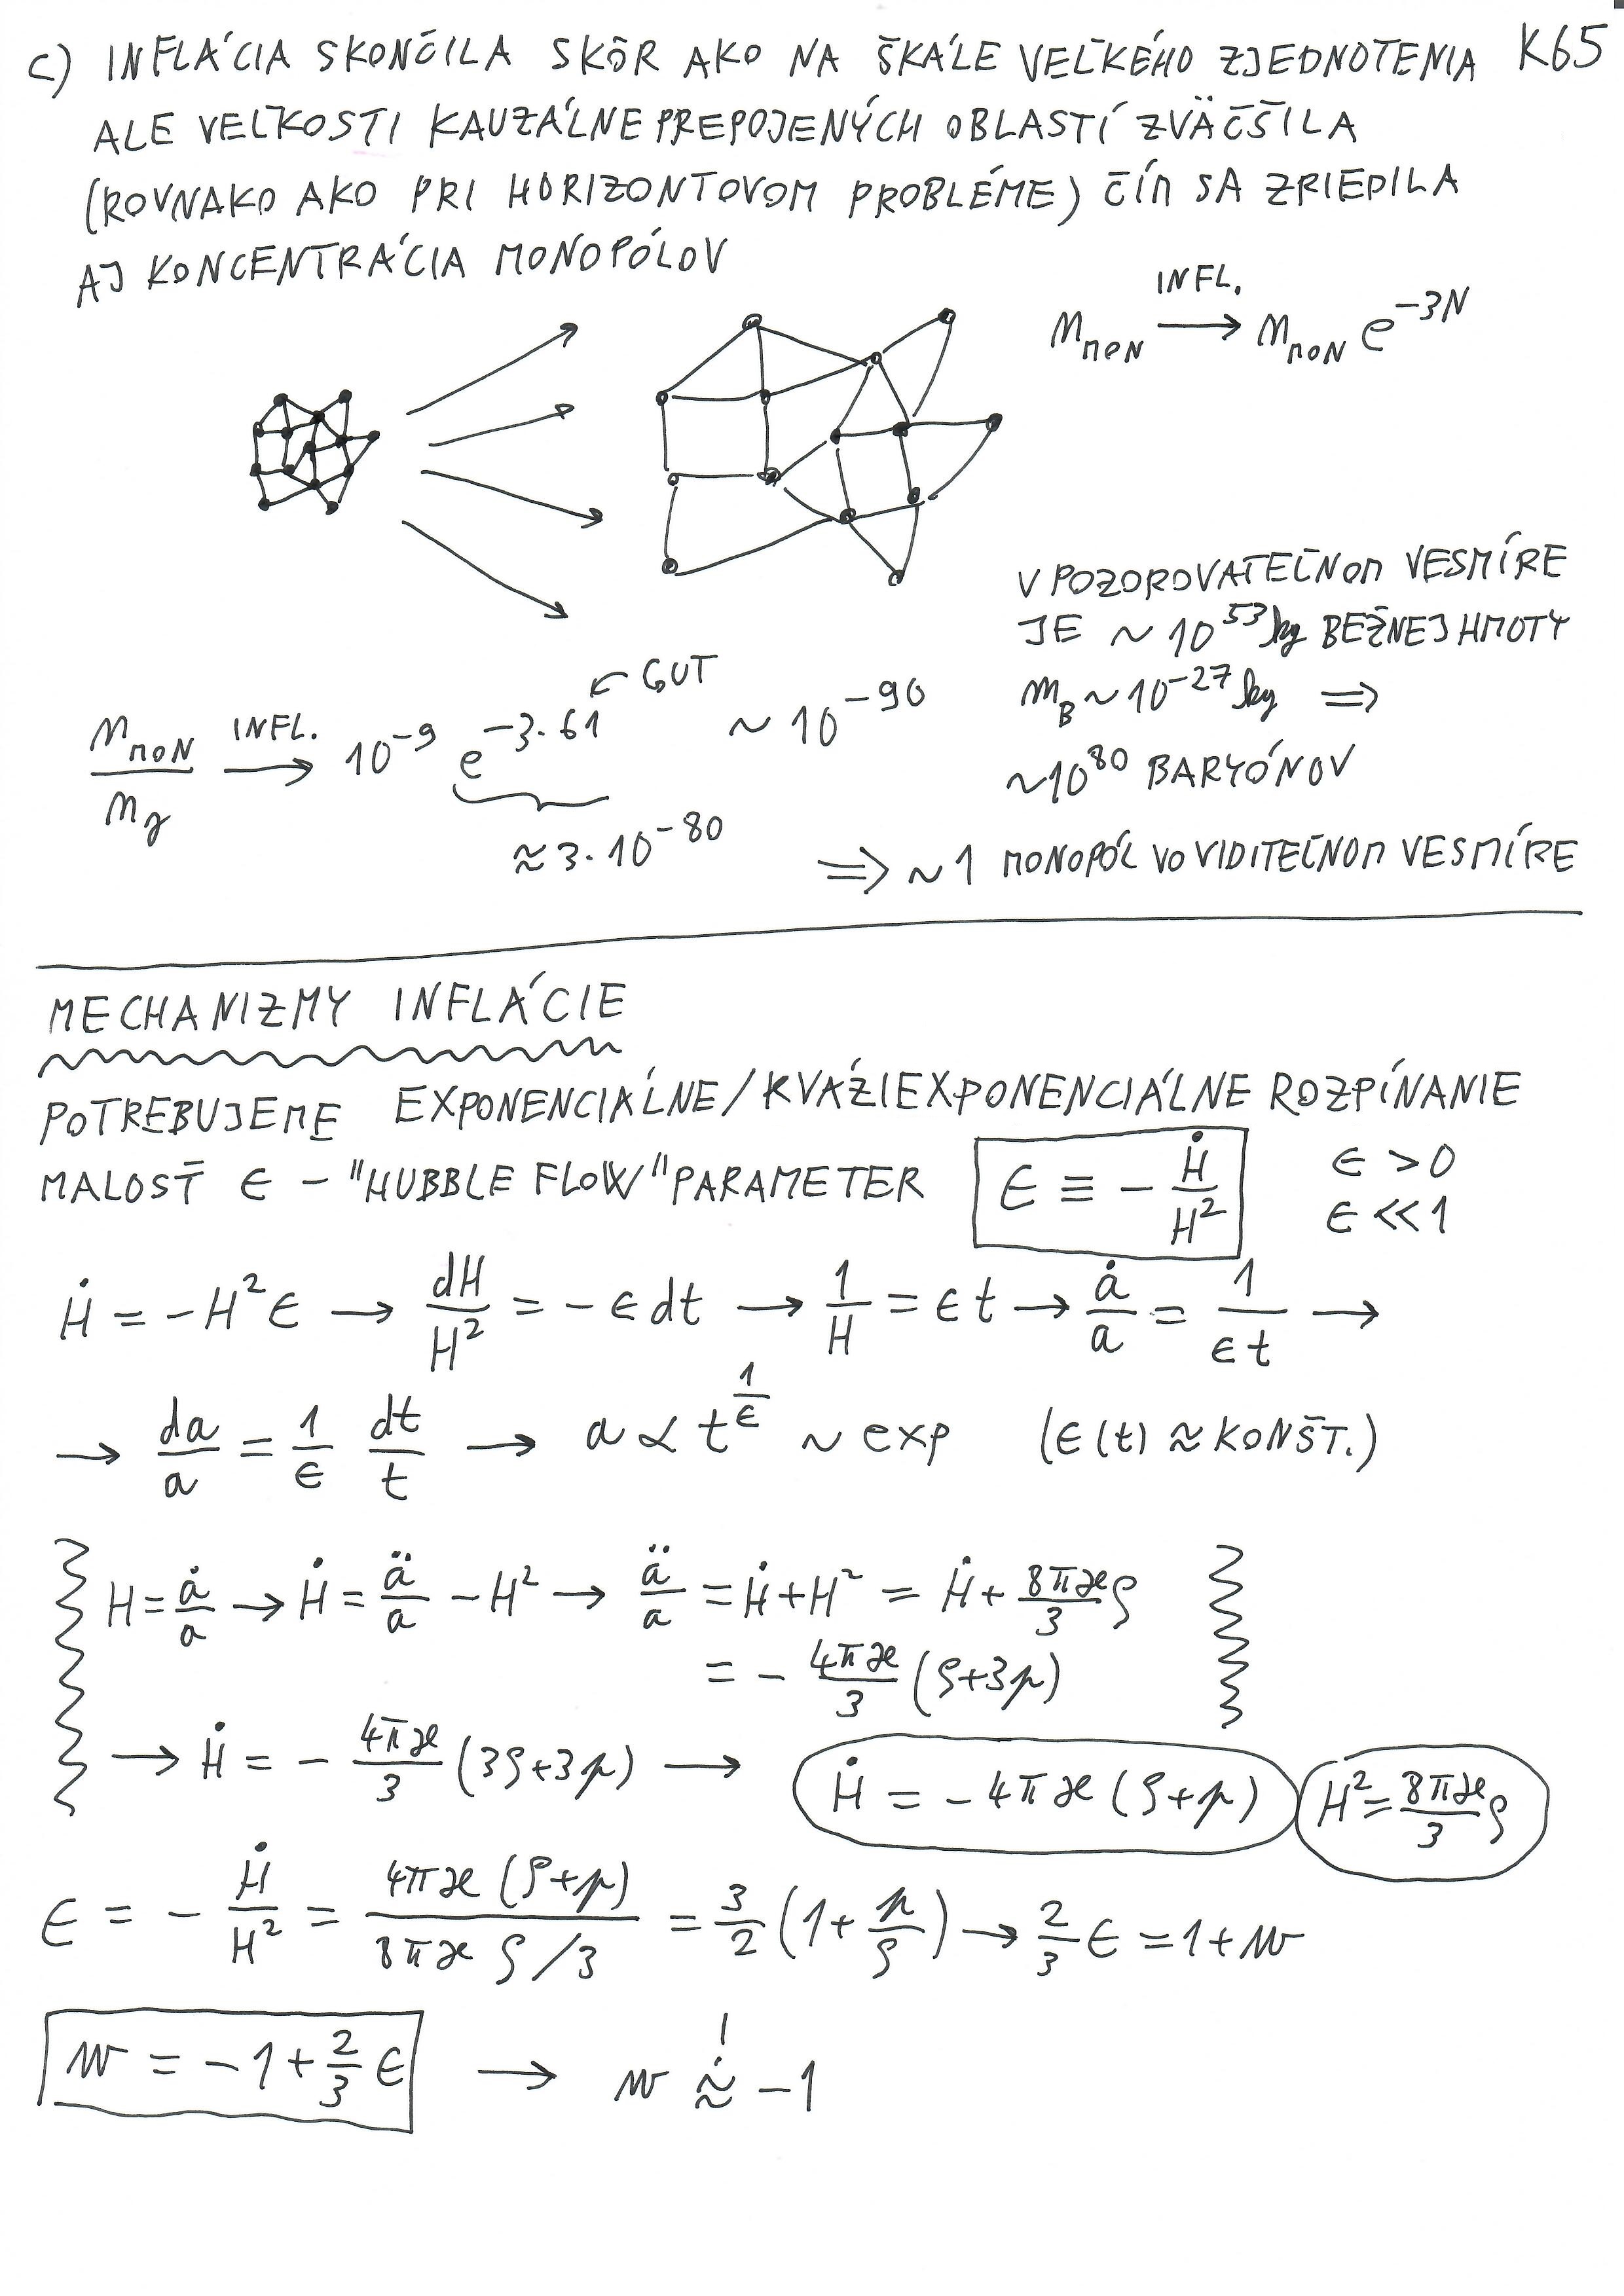 K65
c) INFLÁCIA SKONČILA SKÔR AKO NA ŠKÁLE VEĽKÉHO ZJEDNOTENIA
ALE VEĽKOSTI KAUZÁLNE PREPOJENÝCH OBLASTÍ ZVÄČŠILA
(ROVNAKO AKO PRI HORIZONTOVOM PROBLÉME) ČÍM SA ZRIEDILA
AJ KONCENTRÁCIA MONOPÓLOV
n_MON —INFL.→ n_MON e^{-3N}
V POZOROVATEĽNOM VESMÍRE
JE ~ 10^{53} kg BEŽNEJ HMOTY
m_B ~ 10^{-27} kg ⇒
~10^{80} BARYÓNOV
n_MON / n_γ —INFL.→ 10^{-9} e^{-3·61} ~ 10^{-90}
↙ GUT
≈ 3·10^{-80}
⇒ ~ 1 MONOPÓL VO VIDITEĽNOM VESMÍRE
MECHANIZMY INFLÁCIE
POTREBUJEME EXPONENCIÁLNE/KVÁZIEXPONENCIÁLNE ROZPÍNANIE
MALOSŤ ϵ - "HUBBLE FLOW" PARAMETER ϵ ≡ - Ḣ/H² ϵ > 0
ϵ << 1
Ḣ = -H² ϵ → dH/H² = -ϵ dt → 1/H = ϵ t → ȧ/a = 1/(ϵ t) →
→ da/a = 1/ϵ dt/t → a ∝ t^{1/ϵ} ~ exp (ϵ(t) ≈ KONŠT.)
H = ȧ/a → Ḣ = ä/a - H² → ä/a = Ḣ + H² = Ḣ + 8πϰ/3 ρ
= - 4πϰ/3 (ρ+3p)
→ Ḣ = - 4πϰ/3 (3ρ+3p) → Ḣ = -4πϰ(ρ+p) H² = 8πϰ/3 ρ
ϵ = - Ḣ/H² = 4πϰ(ρ+p) / (8πϰ ρ/3) = 3/2 (1 + p/ρ) → 2/3 ϵ = 1 + w
w = -1 + 2/3 ϵ → w ≈! -1